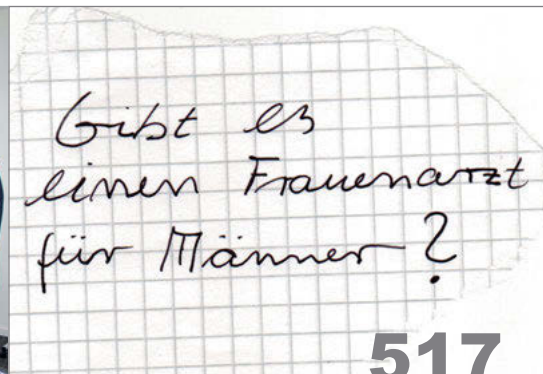 Gibt es
einen Frauenarzt
für Männer?
517